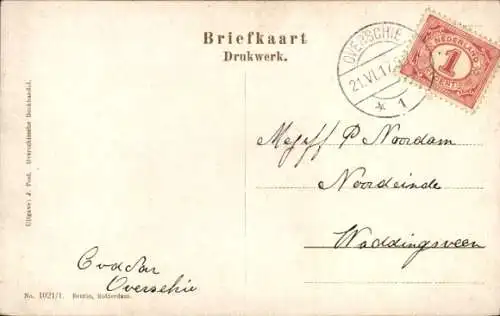 Briefkaart
Drukwerk.
OVERSCHIE
21.VI.17
1
NEDERLAND
1
CENT
Mejeff P Noordam
Noordeinde
Waddingsveen
Overschie
Uitgave: J. Post, Overschiesche Boekhandel.
No. 1021/1. Rotterdam.